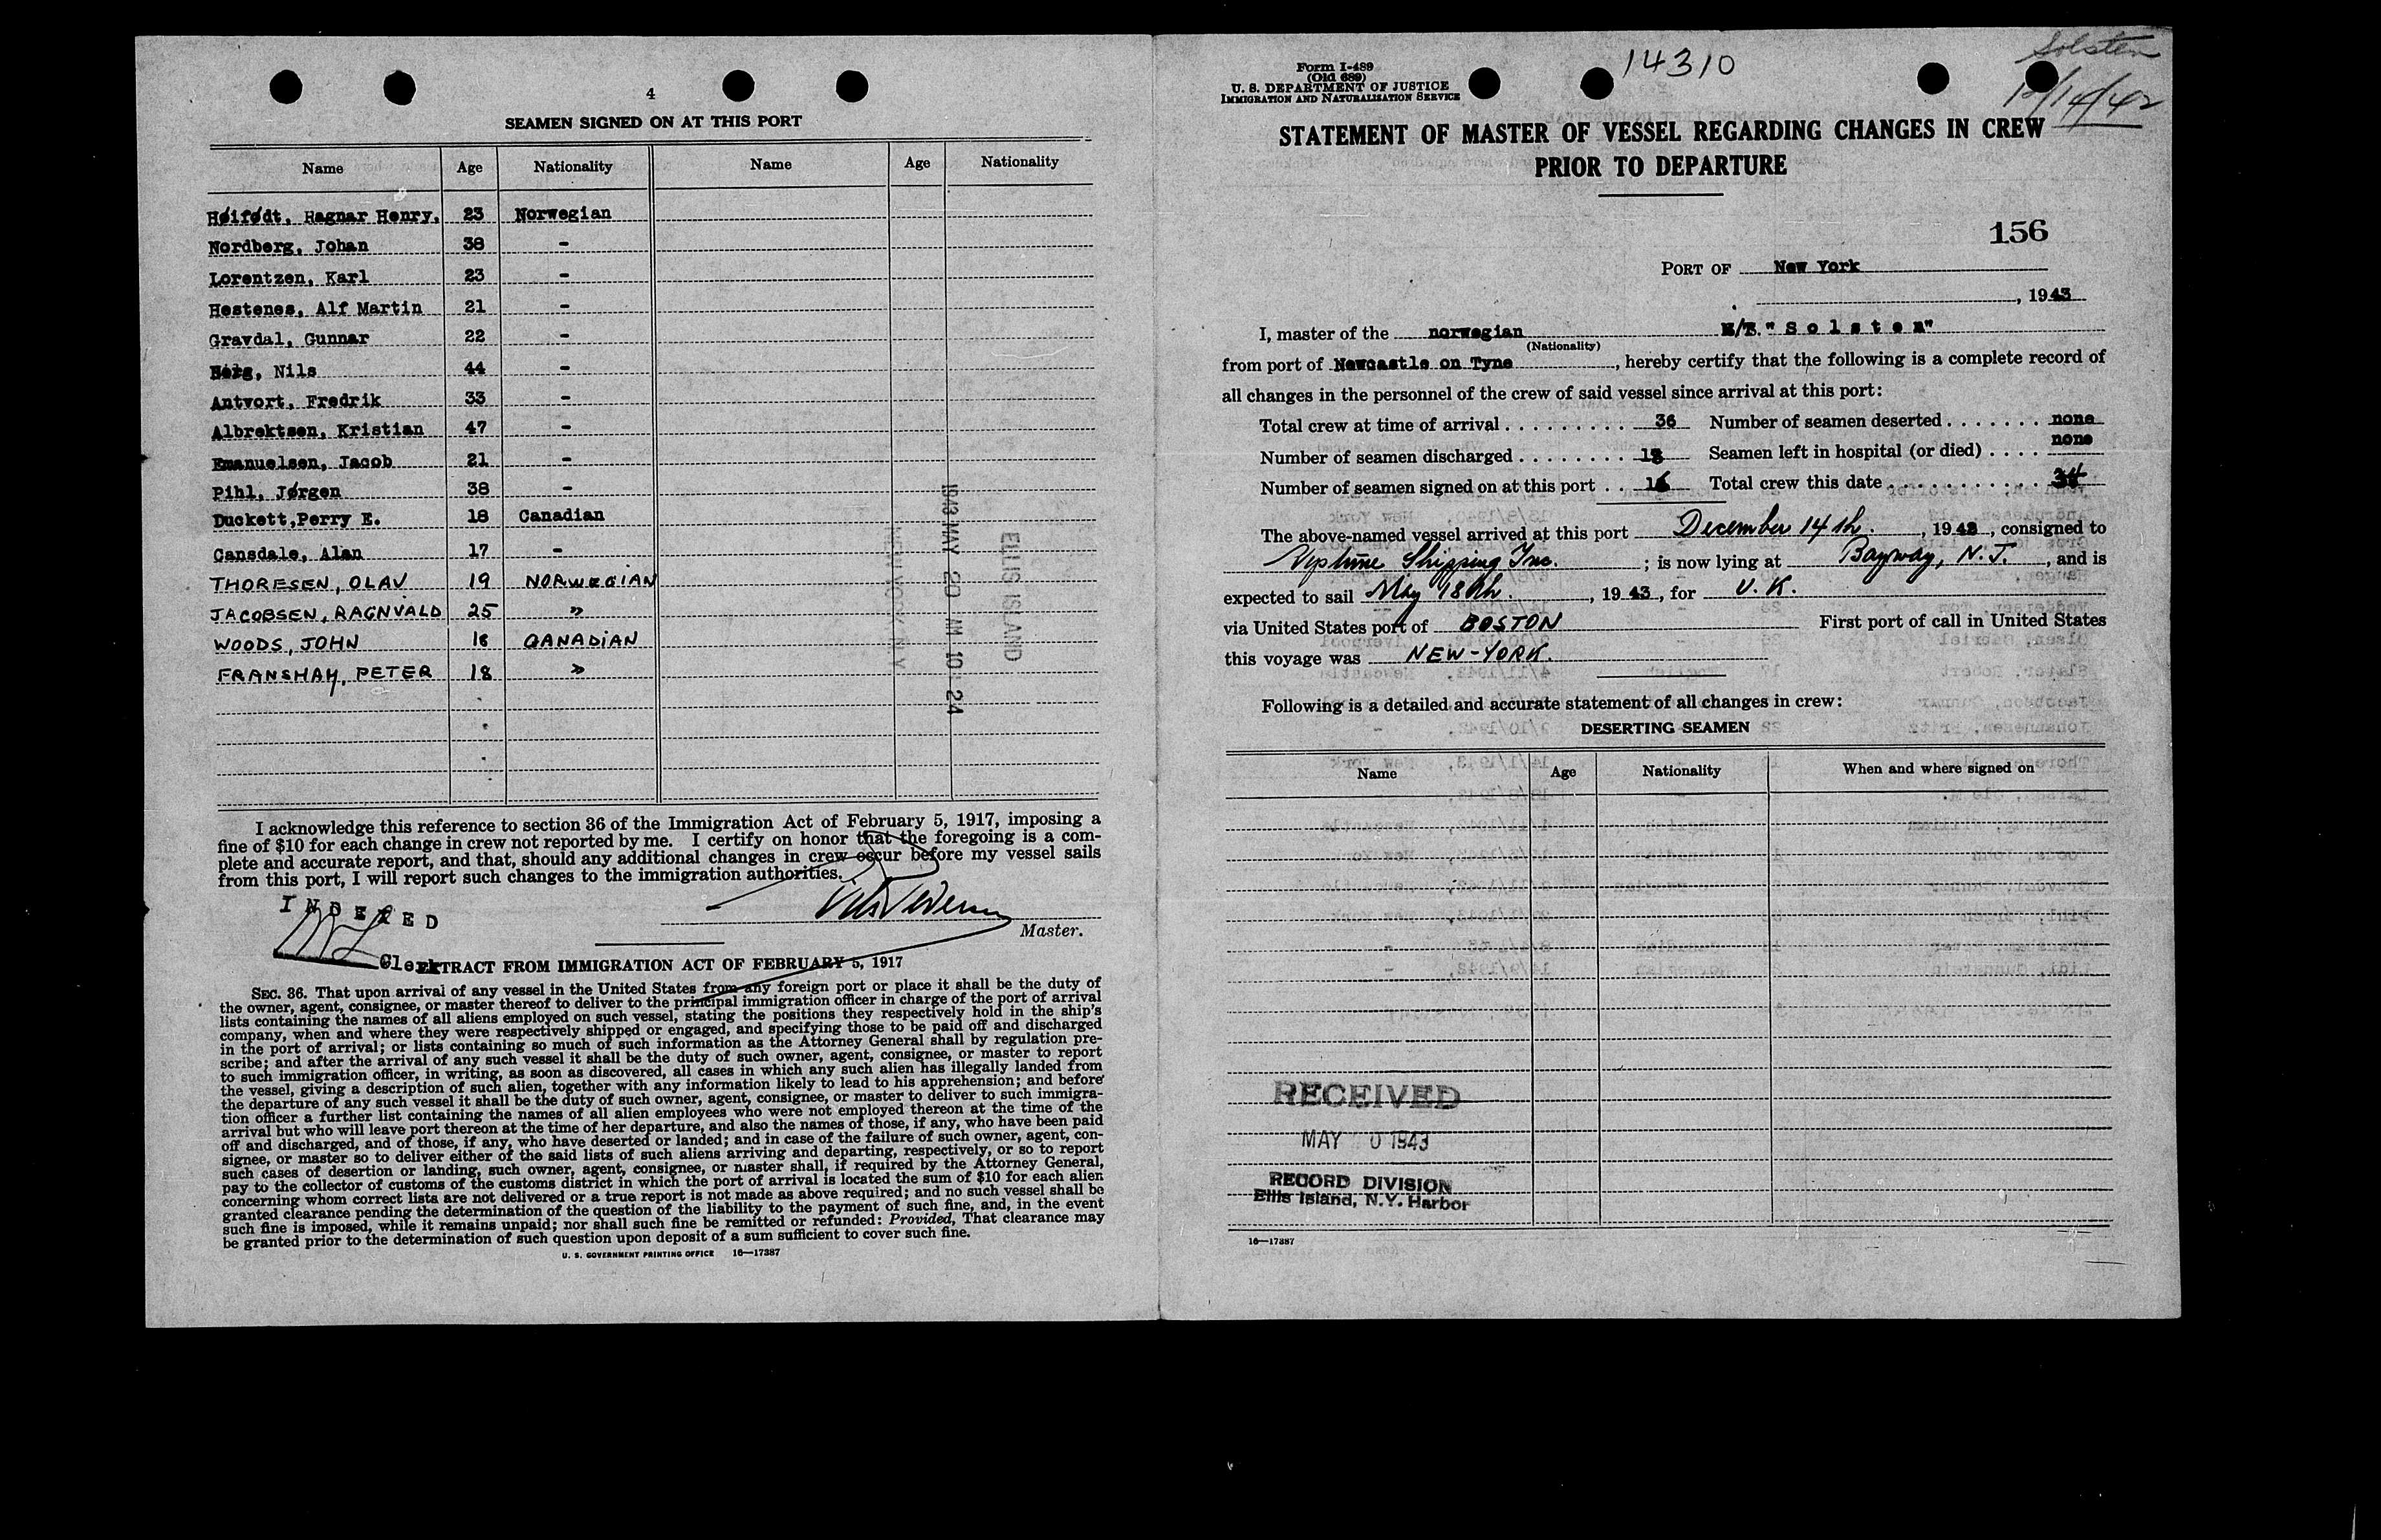 4
SEAMEN SIGNED ON AT THIS PORT
Name Age Nationality Name Age Nationality
Høifødt, Ragnar Henry, 23 Norwegian
Nordberg, Johan 38 -
Lorentzen, Karl 23 -
Hestenes, Alf Martin 21 -
Gravdal, Gunnar 22 -
Nils 44 -
Antvort, Fredrik 33 -
Albrektsen, Kristian 47 -
Emanuelsen, Jacob 21 -
Pihl, Jørgen 38 -
Duckett, Perry E. 18 Canadian
Cansdale, Alan 17 -
THORESEN, OLAV 19 NORWEGIAN
JACOBSEN, RAGNVALD 25 "
WOODS, JOHN 18 CANADIAN
FRANSHAY, PETER 18 "
1943 MAY 20 AM 10 24
ELLIS ISLAND
I acknowledge this reference to section 36 of the Immigration Act of February 5, 1917, imposing a
fine of $10 for each change in crew not reported by me. I certify on honor that the foregoing is a com-
plete and accurate report, and that, should any additional changes in crew occur before my vessel sails
from this port, I will report such changes to the immigration authorities.
INDEXED
Master.
Clerk
EXTRACT FROM IMMIGRATION ACT OF FEBRUARY 5, 1917
SEC. 36. That upon arrival of any vessel in the United States from any foreign port or place it shall be the duty of
the owner, agent, consignee, or master thereof to deliver to the principal immigration officer in charge of the port of arrival
lists containing the names of all aliens employed on such vessel, stating the positions they respectively hold in the ship's
company, when and where they were respectively shipped or engaged, and specifying those to be paid off and discharged
in the port of arrival; or lists containing so much of such information as the Attorney General shall by regulation pre-
scribe; and after the arrival of any such vessel it shall be the duty of such owner, agent, consignee, or master to report
to such immigration officer, in writing, as soon as discovered, all cases in which any such alien has illegally landed from
the vessel, giving a description of such alien, together with any information likely to lead to his apprehension; and before
the departure of any such vessel it shall be the duty of such owner, agent, consignee, or master to deliver to such immigra-
tion officer a further list containing the names of all alien employees who were not employed thereon at the time of the
arrival but who will leave port thereon at the time of her departure, and also the names of those, if any, who have been paid
off and discharged, and of those, if any, who have deserted or landed; and in case of the failure of such owner, agent, con-
signee, or master so to deliver either of the said lists of such aliens arriving and departing, respectively, or so to report
such cases of desertion or landing, such owner, agent, consignee, or master shall, if required by the Attorney General,
pay to the collector of customs of the customs district in which the port of arrival is located the sum of $10 for each alien
concerning whom correct lists are not delivered or a true report is not made as above required; and no such vessel shall be
granted clearance pending the determination of the question of the liability to the payment of such fine, and, in the event
such fine is imposed, while it remains unpaid; nor shall such fine be remitted or refunded: Provided, That clearance may
be granted prior to the determination of such question upon deposit of a sum sufficient to cover such fine.
U. S. GOVERNMENT PRINTING OFFICE 16—17387
Form I-489
(Old 689)
U. S. DEPARTMENT OF JUSTICE
IMMIGRATION AND NATURALIZATION SERVICE
14310
Solsten
12/14/42
STATEMENT OF MASTER OF VESSEL REGARDING CHANGES IN CREW
PRIOR TO DEPARTURE
156
PORT OF New York
, 1943
I, master of the norwegian M/T "Solsten"
(Nationality)
from port of Newcastle on Tyne, hereby certify that the following is a complete record of
all changes in the personnel of the crew of said vessel since arrival at this port:
Total crew at time of arrival . . . . . . . . . . 36 Number of seamen deserted . . . . . . . none
Number of seamen discharged . . . . . . . . 18 Seamen left in hospital (or died) . . . . none
Number of seamen signed on at this port . . 16 Total crew this date . . . . . . . . . . . 34
The above-named vessel arrived at this port December 14th., 1942, consigned to
Neptune Shipping Inc. ; is now lying at Bayway, N. J. , and is
expected to sail May 18th. , 1943, for U. K.
via United States port of BOSTON First port of call in United States
this voyage was NEW-YORK.
Following is a detailed and accurate statement of all changes in crew:
DESERTING SEAMEN
Name Age Nationality When and where signed on
RECEIVED
MAY 0 1943
RECORD DIVISION
Ellis Island, N.Y. Harbor
16—17387